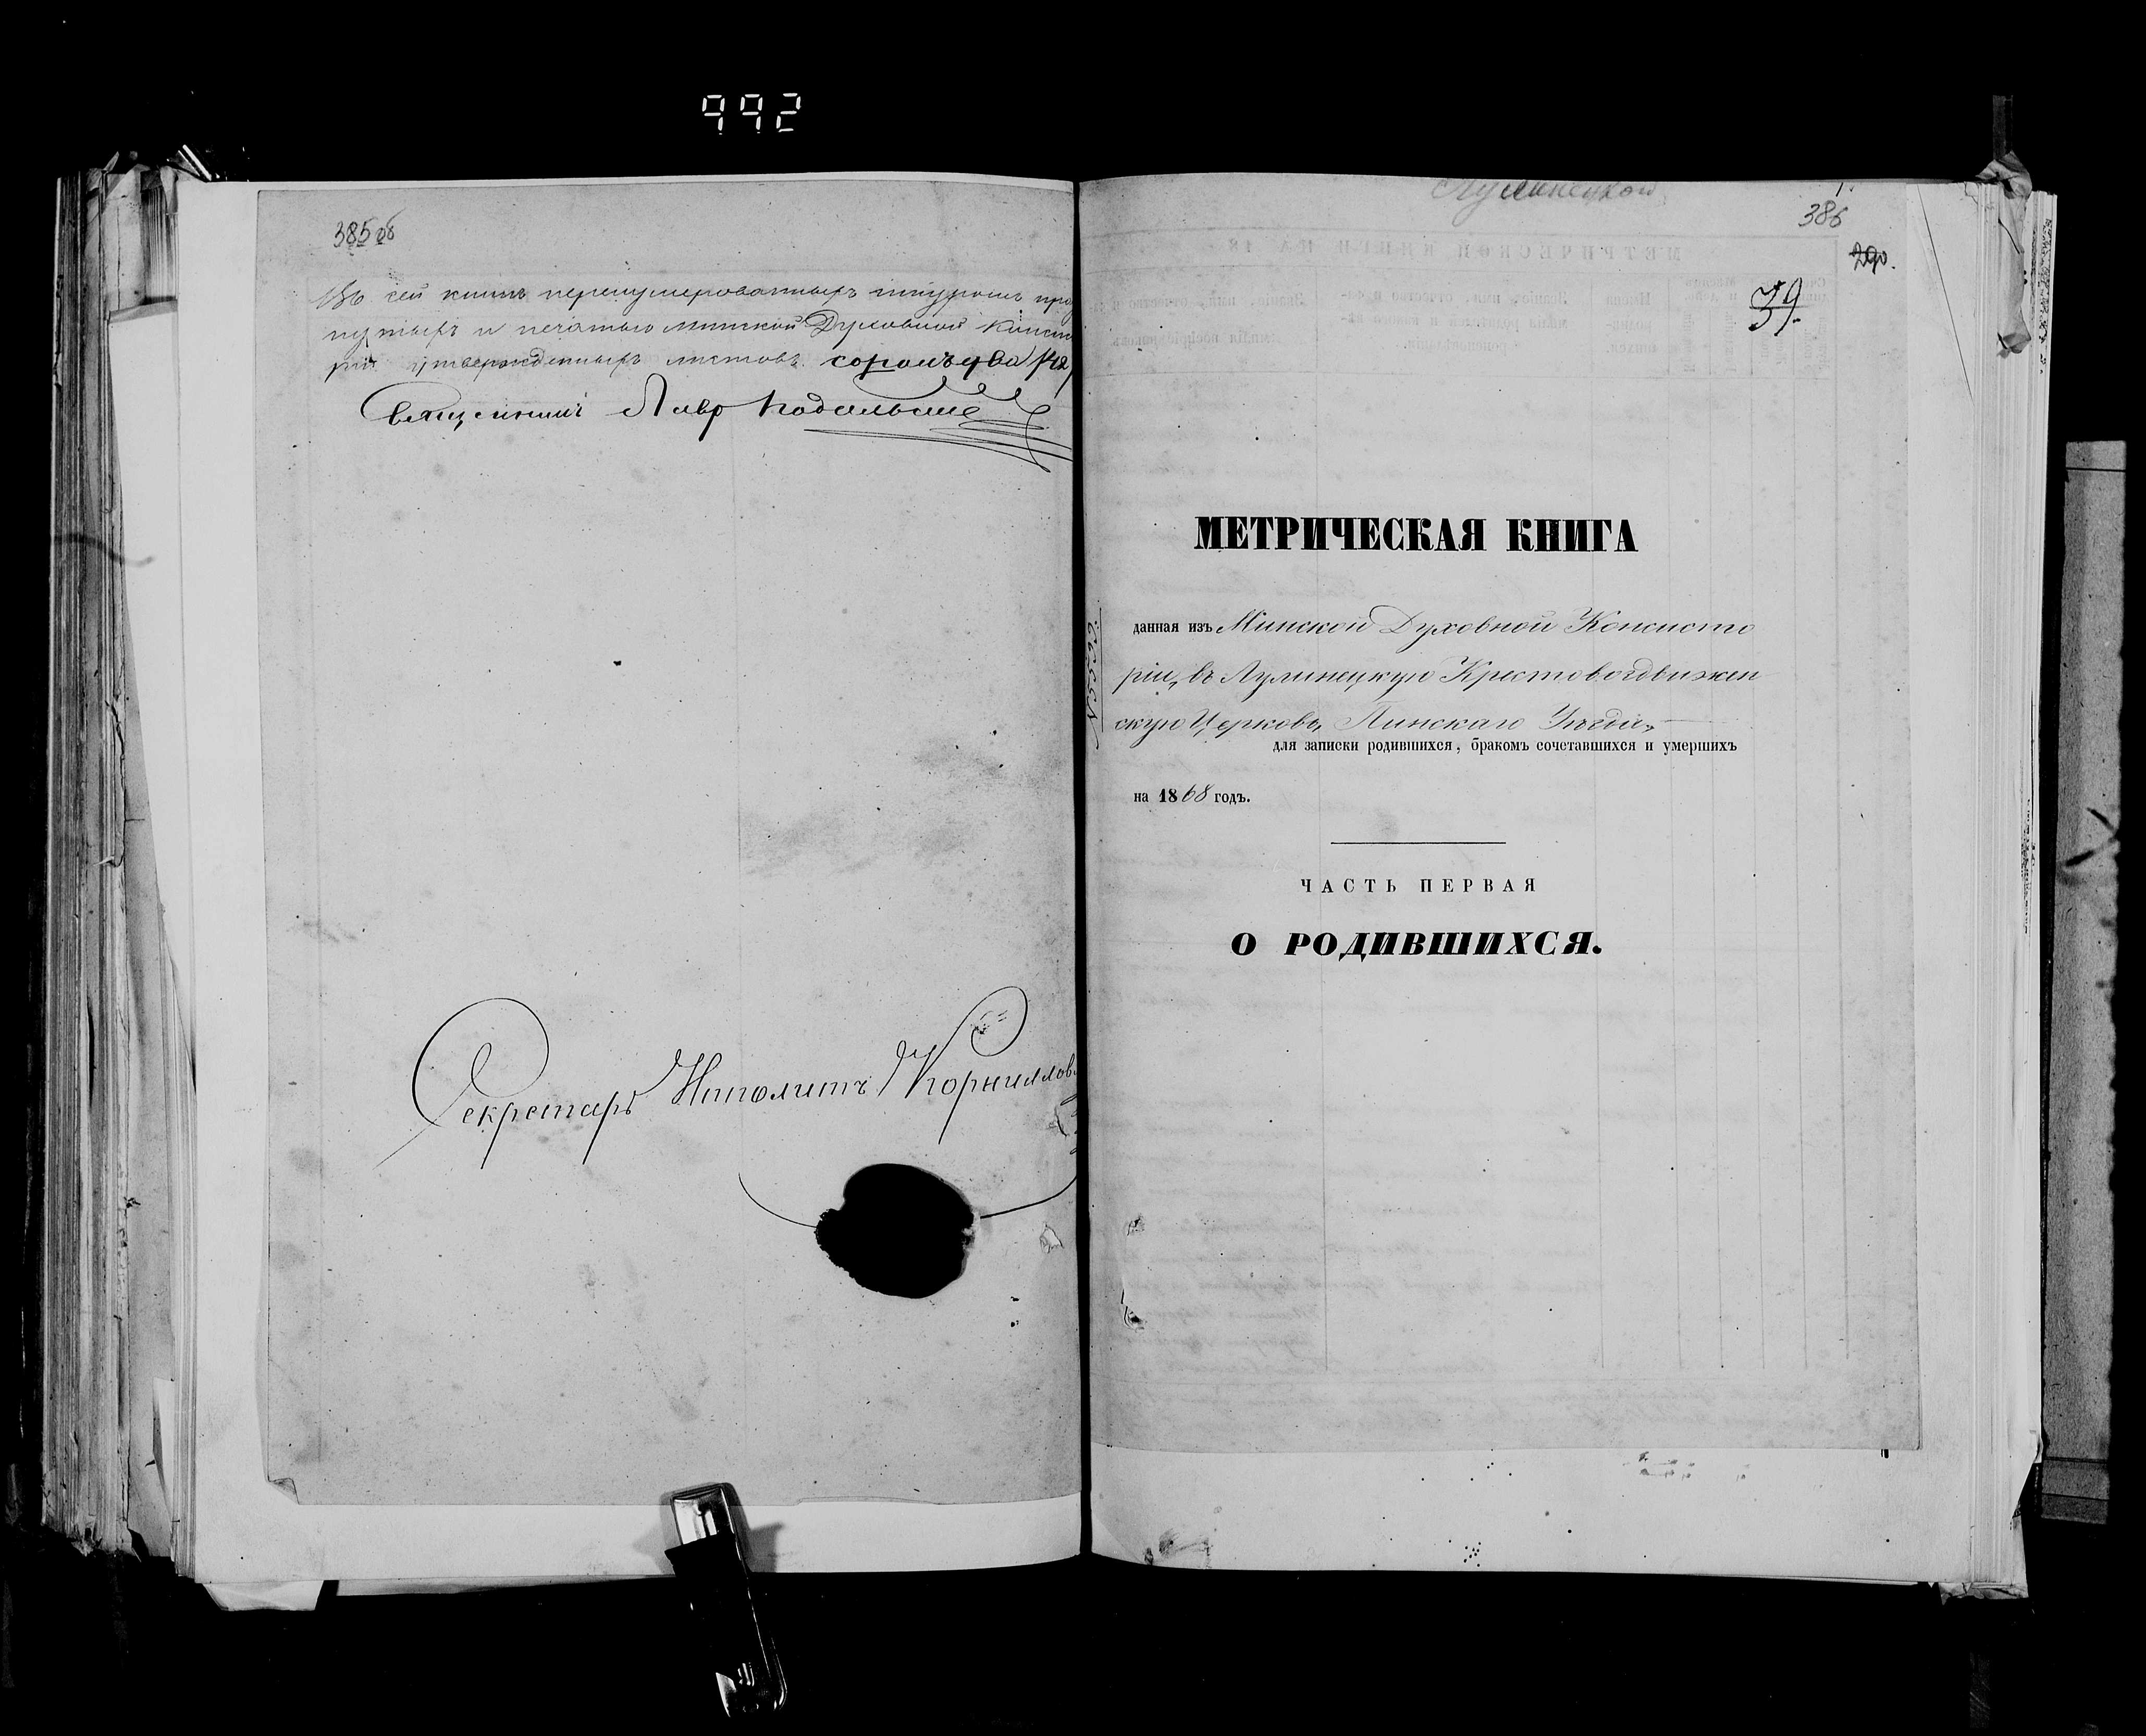 992
385 об
Въ сей книге перенумерованныхъ шнуромъ про
нутыхъ и печатью Минской Духовной Консисто
ріи утвержденныхъ листовъ сорокъ два /42/
Священникъ Лавр
Секретарь Ипполитъ Корнилов
Лулинецкой
1.
386
290.
39.
МЕТРИЧЕСКАЯ КНИГА
№5599.
данная изъ Минской Духовной Консисто
ріи, въ Лулинецкую Крестовоздвижен
скую Церковь, Пинскаго Уѣзда,
для записки родившихся, бракомъ сочетавшихся и умершихъ
на 1868 годъ.
ЧАСТЬ ПЕРВАЯ
О РОДИВШИХСЯ.